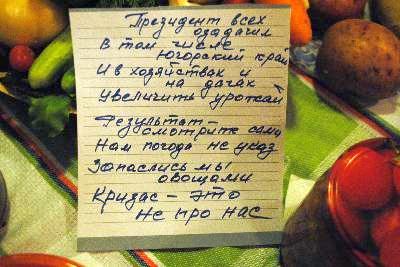 Президент всех
озадачил
В том числе
Югорский край
И в хозяйствах и
на дачах
Увеличить урожай
Результат -
смотрите сами
Нам погода не указ
Запаслись мы
овощами
Кризас - это
не про нас